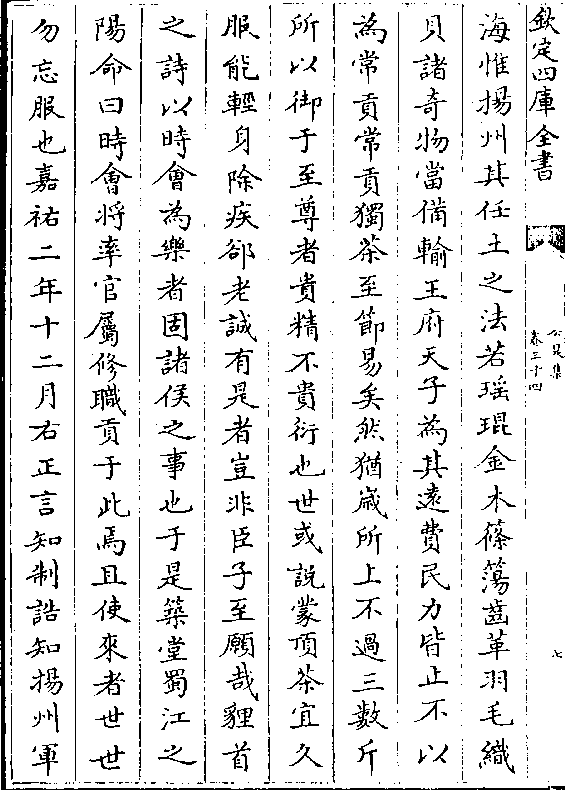 欽定四庫全書
公是集
卷三十四
七
海惟揚州其任土之法若瑶琨金木篠簜齒革羽毛織
貝諸奇物當備輸王府天子為其遠費民力皆止不以
為常貢常貢獨茶至節易矣然猶嵗所上不過三數斤
所以御于至尊者貴精不貴衍也世或說蒙頂茶宜久
服能輕身除疾郤老誠有是者豈非臣子至願哉貍首
之詩以時會為樂者固諸侯之事也于是築堂蜀江之
陽命曰時會將率官屬修職貢于此焉且使來者世世
勿忘服也嘉祐二年十二月右正言知制誥知揚州軍